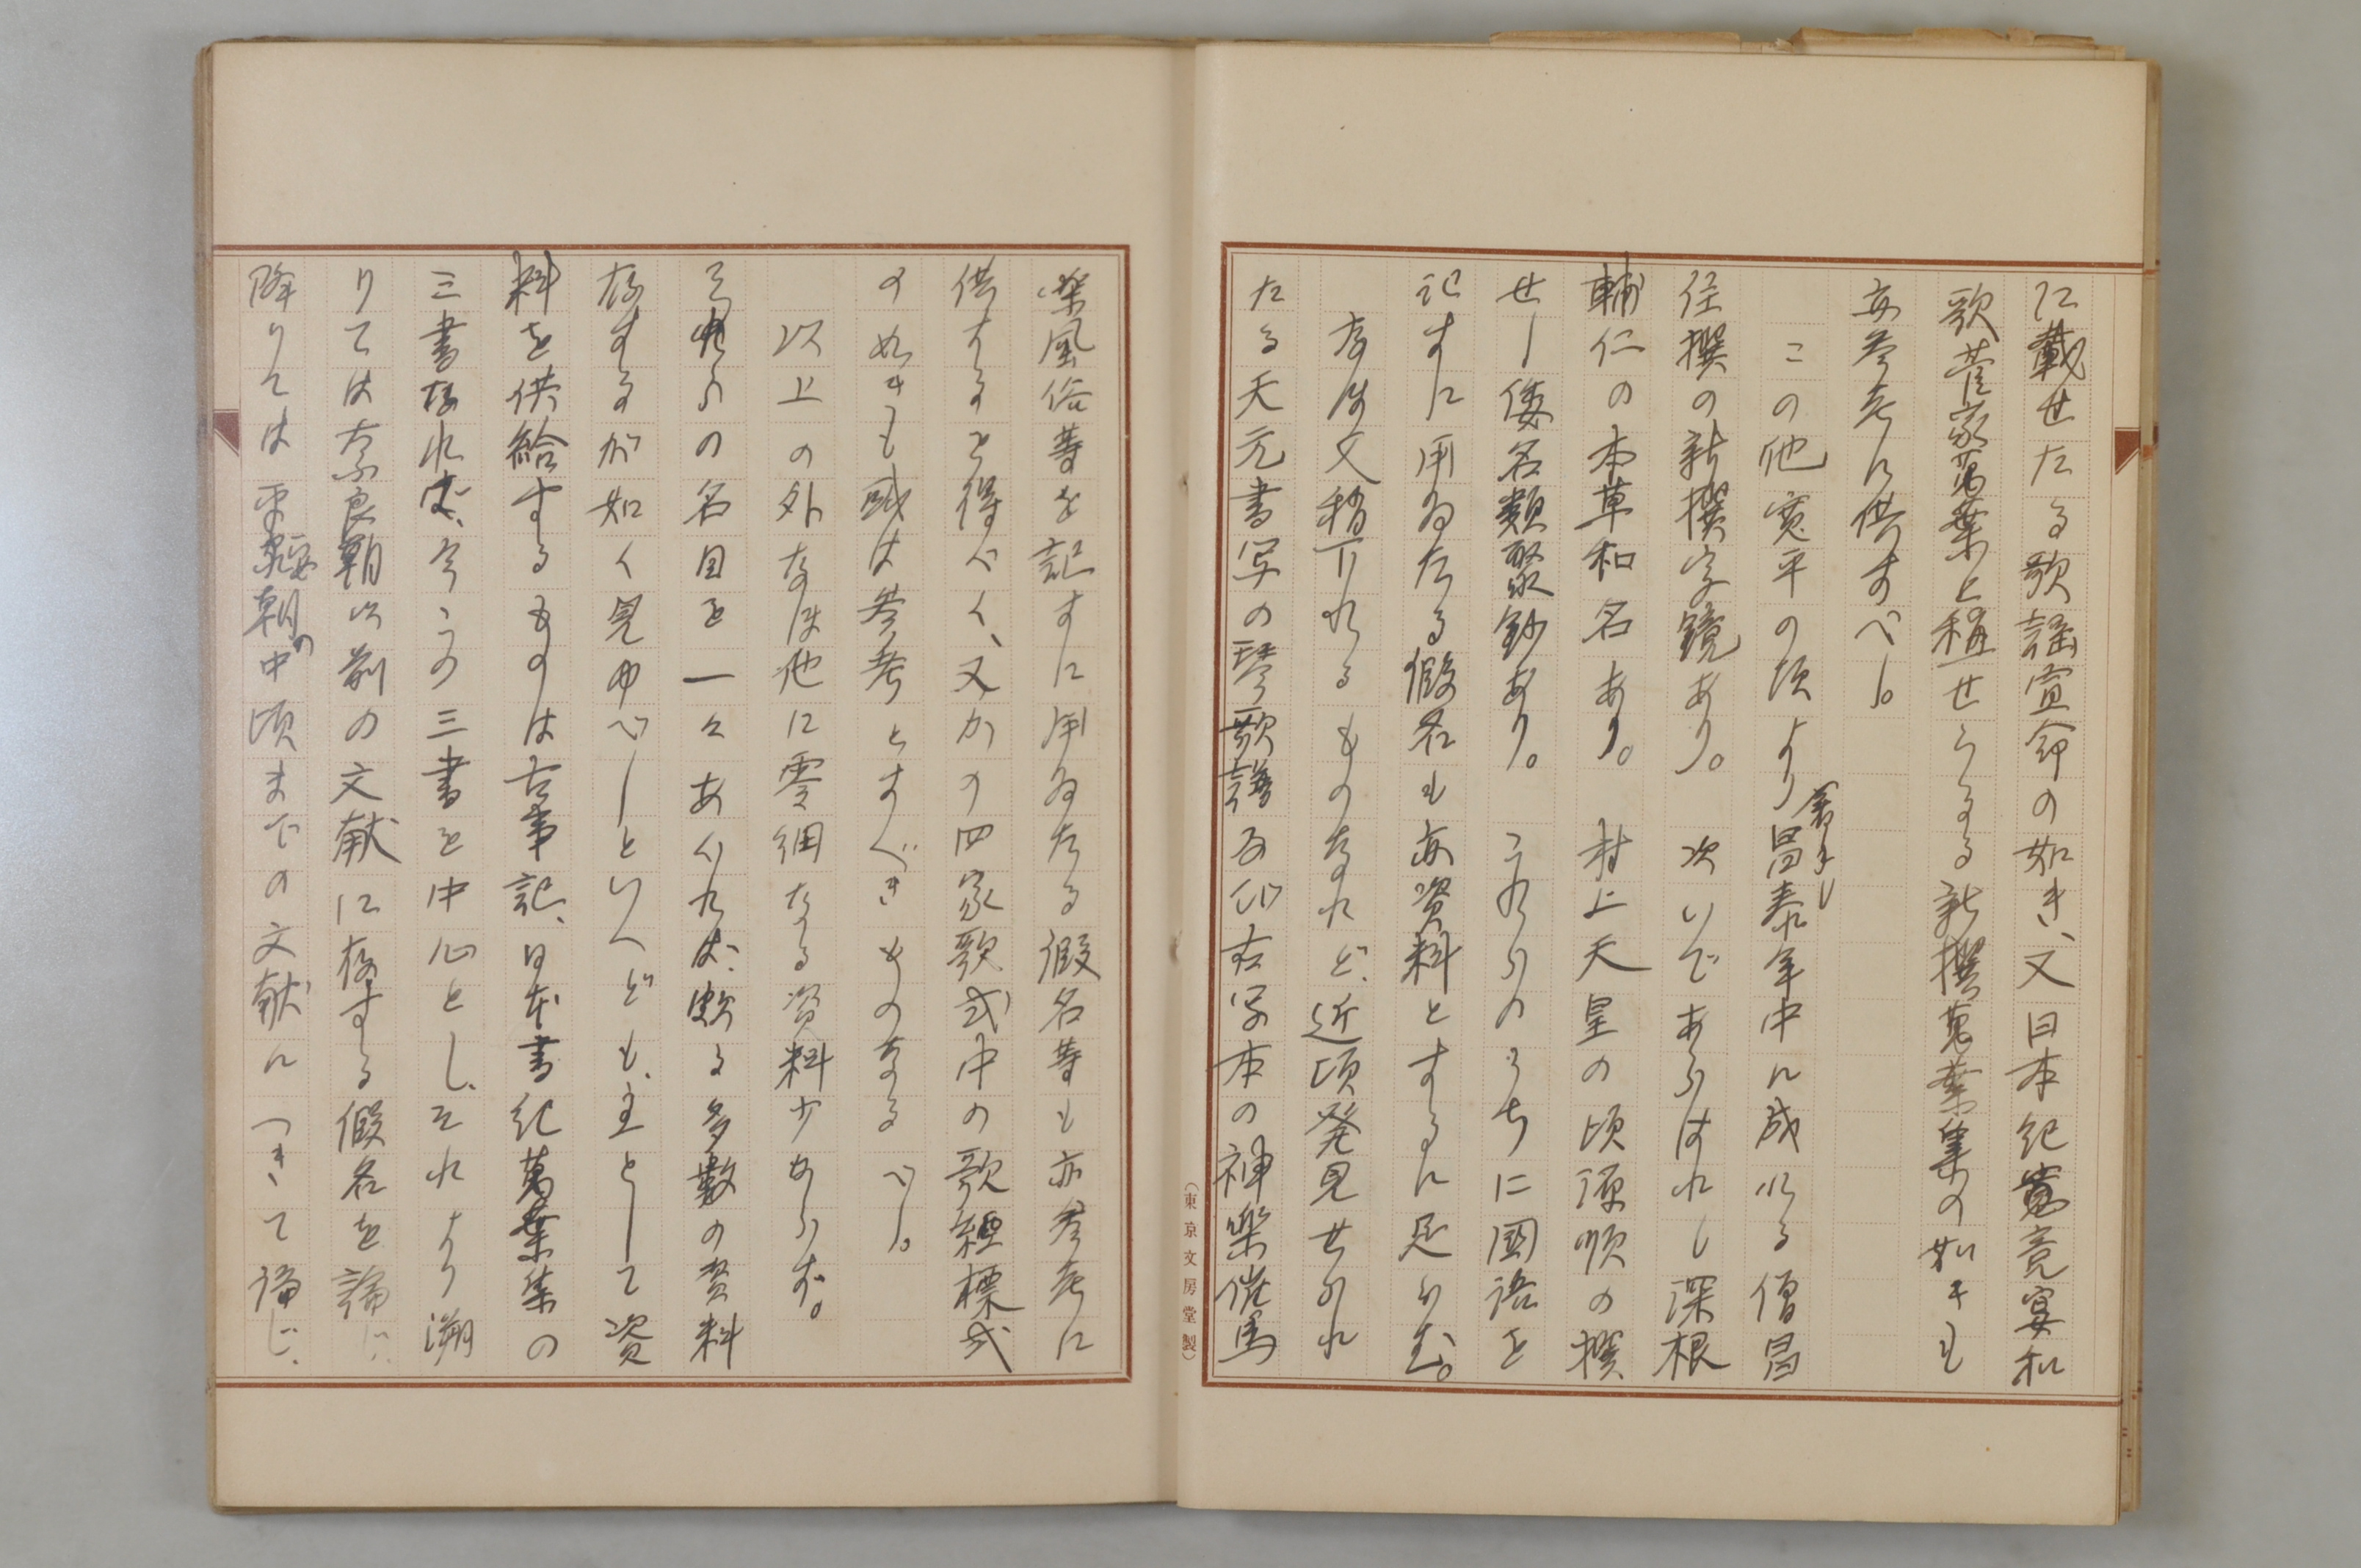 に載せたる歌謡宣命の如き、又日本紀竟宴和
歌菅家萬葉と称せらるる新撰萬葉集の如きも
亦参考に供すべし。
この他寛平の頃より昌泰年中に成れる僧昌
住撰の新撰字鏡あり。次いであらはれし深根
輔仁の本草和名あり。村上天皇の頃源順の撰
せし倭名類聚鈔あり。これらのうちに國語を
記すに用ゐたる假名も亦資料とするに足らむ。
なほ文稍下れるものなれど、近頃発見せられ
たる天元書写の琴歌譜及び古写本の神樂催馬
樂風俗等を記すに用ゐたる假名等も亦参考に
供することを得べく、又かの四家歌式中の歌經標式
の如きも或は参考とすべきものなるべし。
以上の外なほ他に零細なる資料少からず。
それらの名目を一々あぐれば、頗る多數の資料
存するが如く見ゆべしといへども、主として資
料を供給するものは古事記、日本書紀萬葉集の
三書なれば、今この三書を中心とし、それより溯
りては奈良朝以前の文献に存する假名を論じ、
降りては平安朝の中頃までの文献につきて論じ、
(東京文房堂製)